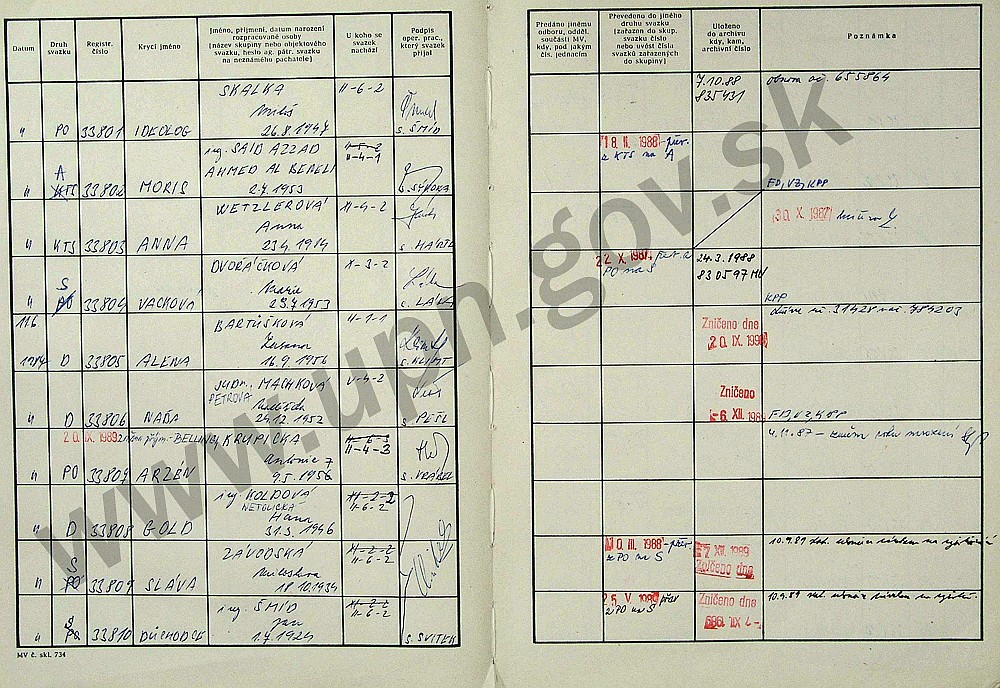 Datum
Druh svazku
Registr. číslo
Krycí jméno
Jméno, příjmení, datum narození rozpracované osoby (název skupiny nebo objektového svazku, heslo ag. pátr. svazku na neznámého pachatele)
U koho se svazek nachází
Podpis oper. prac., který svazek přijal
Předáno jinému odboru, odděl. součásti MV, kdy, pod jakým čís. jednacím
Převedeno do jiného druhu svazku (zařazen do skup. svazku číslo nebo uvést čísla svazků zařazených do skupiny)
Uloženo do archivu kdy, kam, archivní číslo
Poznámka
SKALKA
Miloš
" PO 33801 IDEOLOG 26.8.1947
II-6-2
s. ŠMÍD
7.10.88
835431
655864
ing. SAID AZZAD
AHMED AL
A
" KTS 33802 MORIS 2.7.1953
II-5-2
II-4-1
s. SÝKORA
18. II. 1988 - přev.
z KTS na A
WETZLEROVÁ
Anna
" KTS 33803 ANNA 23.4.1914
FD, VZ, KPP
30. X. 1987
DVOŘÁČKOVÁ
Marie
S
" PO 33804 VACKOVÁ 23.7.1953
X-3-2
22. X. 1987 přev. z
PO na S
24.3.1988
830597 MV
KPP
11.6. BARTŮŠKOVÁ
Zuzana
1987 D 33805 ALENA 16.9.1956
II-1-1
s. KLIMT
31428 784203
Zničeno dne
20. IX. 1990
JUDr. MACHKOVÁ
PETROVÁ
" D 33806 NAĎA 24.12.1952
V-4-2
s. PETL
Zničeno
-6. XII. 1989
FD, VZ, KPP
20. IX. 1989 změna příjm. - KRUPIČKA
Antonie
" PO 33807 ARZEN 9.5.1956
II-6-3
II-4-3
s. VRÁBEL
4.11.87 - změna roku narození
ing. KOLDOVÁ
NETOLICKÁ
Hana
" D 33808 GOLD 31.3.1946
XI-2-2
II-6-2
ZÁVODSKÁ
Miloslava
S
" PO 33809 SLÁVA 18.10.1934
XI-2-2
II-6-2
10. III. 1988 - přev.
z PO na S
-7. XII. 1989
Zničeno dne
10.9.89
ing. ŠMÍD
Jan
S
" PO 33810 DŮCHODCE 1.7.1924
XI-2-2
II-6-2
s. SVITEK
25. V. 1988 přev
z PO na S
Zničeno dne
-7. XII. 1989
10.9.89
MV č. skl. 734
www.upn.gov.sk